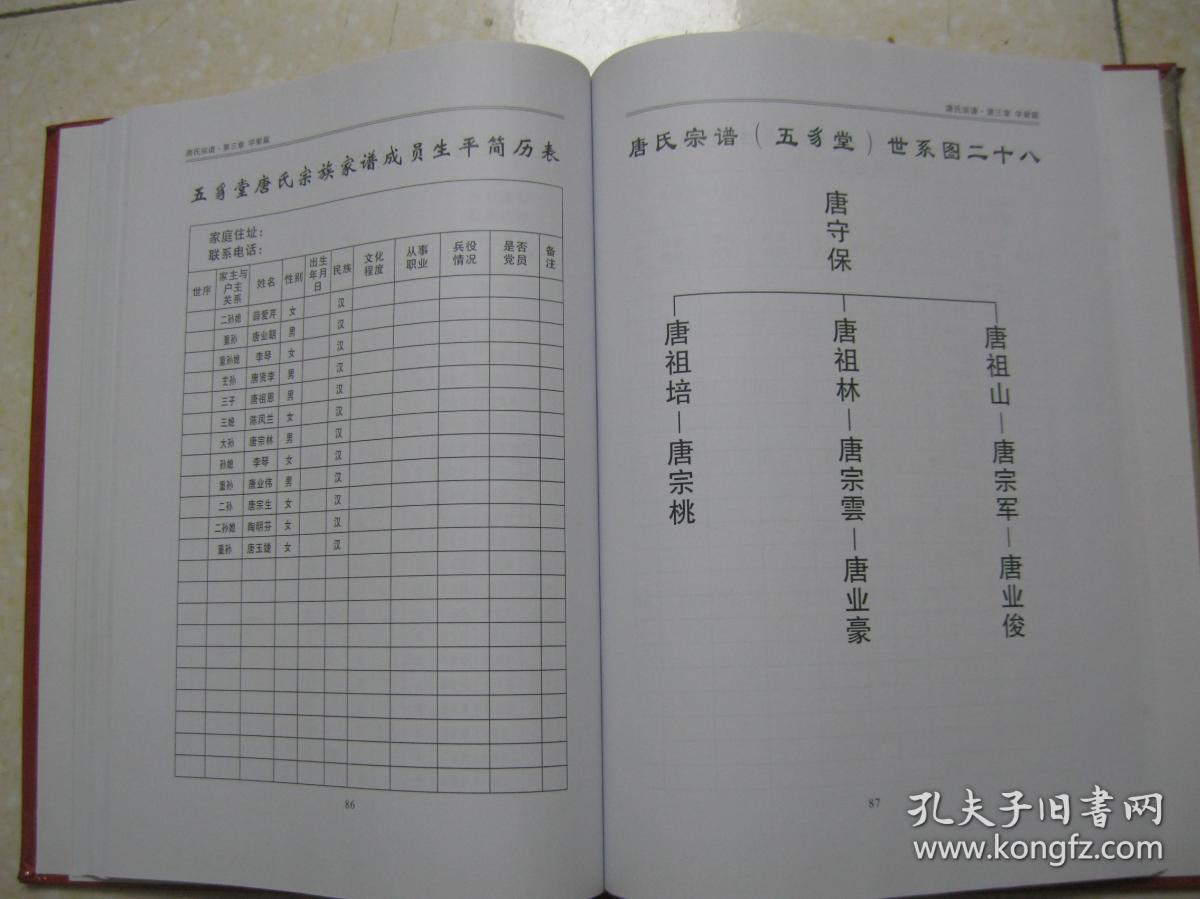 唐氏宗谱·第三章 字辈篇
五豸堂唐氏宗族家谱成员生平简历表
家庭住址：
联系电话：
世序 家主与户主关系 姓名 性别 出生年月日 民族 文化程度 从事职业 兵役情况 是否党员 备注
二孙媳 薛爱芹 女 汉
重孙 唐业朝 男 汉
重孙媳 李琴 女 汉
玄孙 唐贤李 男 汉
三子 唐祖恩 男 汉
三媳 陈凤兰 女 汉
大孙 唐宗林 男 汉
孙媳 李琴 女 汉
重孙 唐业伟 男 汉
二孙 唐宗生 女 汉
二孙媳 陶明芬 女 汉
重孙 唐玉婕 女 汉
86
唐氏宗谱·第三章 字辈篇
唐氏宗谱（五豸堂）世系图二十八
唐守保
唐祖培—唐宗桃
唐祖林—唐宗雲—唐业豪
唐祖山—唐宗军—唐业俊
87
孔夫子旧书网
www.kongfz.com